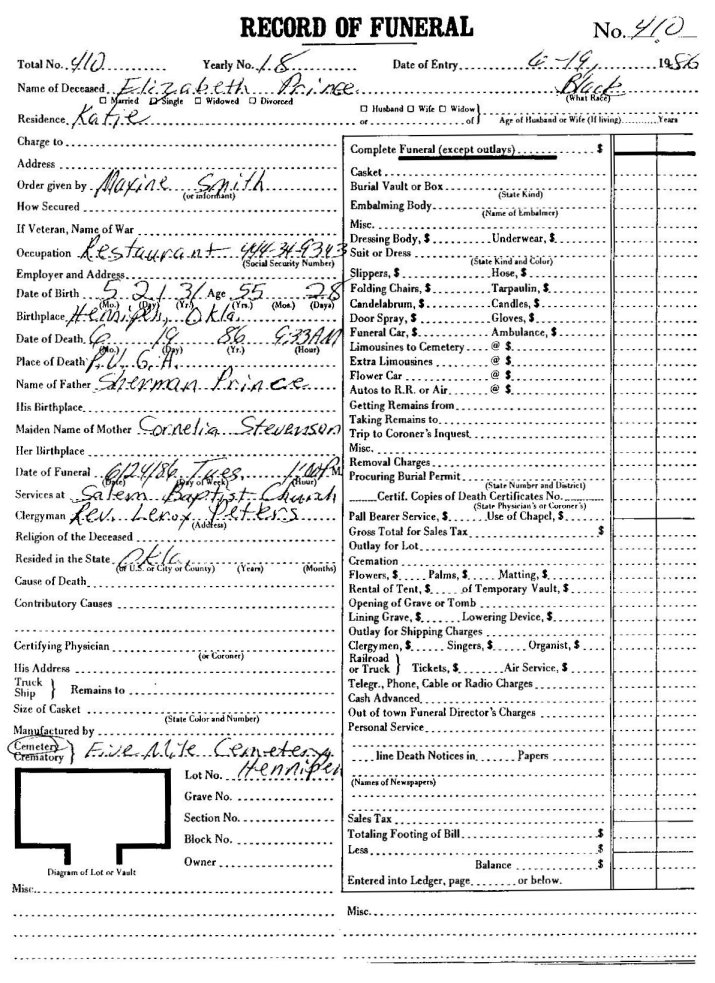 RECORD OF FUNERAL No. 410
Total No. 410 Yearly No. 18 Date of Entry 6-19, 1986
Name of Deceased Elizabeth Prince Black
☐ Married ☑ Single ☐ Widowed ☐ Divorced (What Race)
Residence Katie ☐ Husband ☐ Wife ☐ Widow} or of} Age of Husband or Wife (If living) Years
Charge to
Address
Order given by Maxine Smith
(or informant)
How Secured
If Veteran, Name of War
Occupation Restaurant 444-34-9343
(Social Security Number)
Employer and Address
Date of Birth 5 2 31 Age 55 28
(Mo.) (Day) (Yr.) (Yrs.) (Mos.) (Days)
Birthplace Okla.
Date of Death 6 19 86 9:33 AM
(Mo.) (Day) (Yr.) (Hour)
Place of Death P.V.G.H.
Name of Father Sherman Prince
His Birthplace
Maiden Name of Mother Cornelia Stevenson
Her Birthplace
Date of Funeral 6/24/86 Tues. M
(Date) (Day of Week) (Hour)
Services at Salem Baptist Church
Clergyman Rev. Leroy Peters
(Address)
Religion of the Deceased
Resided in the State Okla
(of U.S. or City or County) (Years) (Months)
Cause of Death
Contributory Causes
Certifying Physician
(or Coroner)
His Address
Truck
Ship } Remains to
Size of Casket
(State Color and Number)
Manufactured by
Cemetery
Crematory } Five Mile Cemetery
Lot No. Hennipen
Grave No.
Section No.
Block No.
Owner
Diagram of Lot or Vault
Misc.
Complete Funeral (except outlays) $
Casket
Burial Vault or Box
(State Kind)
Embalming Body
(Name of Embalmer)
Misc.
Dressing Body, $ Underwear, $
Suit or Dress
(State Kind and Color)
Slippers, $ Hose, $
Folding Chairs, $ Tarpaulin, $
Candelabrum, $ Candles, $
Door Spray, $ Gloves, $
Funeral Car, $ Ambulance, $
Limousines to Cemetery @ $
Extra Limousines @ $
Flower Car @ $
Autos to R.R. or Air @ $
Getting Remains from
Taking Remains to
Trip to Coroner's Inquest
Misc.
Removal Charges
Procuring Burial Permit
(State Number and District)
Certif. Copies of Death Certificates No.
(State Physician's or Coroner's)
Pall Bearer Service, $ Use of Chapel, $
Gross Total for Sales Tax $
Outlay for Lot
Cremation
Flowers, $ Palms, $ Matting, $
Rental of Tent, $ of Temporary Vault, $
Opening of Grave or Tomb
Lining Grave, $ Lowering Device, $
Outlay for Shipping Charges
Clergymen, $ Singers, $ Organist, $
Railroad
or Truck } Tickets, $ Air Service, $
Telegr., Phone, Cable or Radio Charges
Cash Advanced
Out of town Funeral Director's Charges
Personal Service
line Death Notices in Papers
(Names of Newspapers)
Sales Tax
Totaling Footing of Bill $
Less $
Balance $
Entered into Ledger, page or below.
Misc.